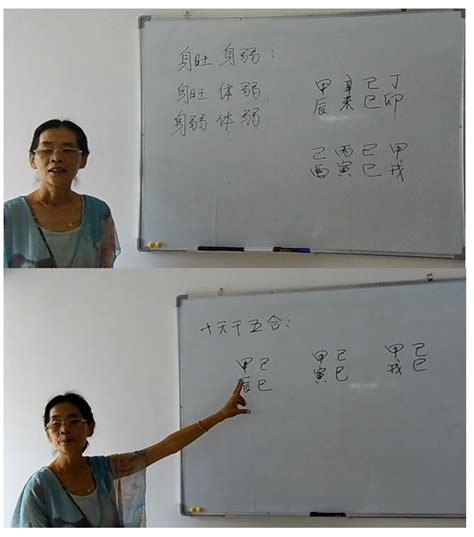 身旺身弱:
身旺体弱
身弱体弱
甲辛己丁
辰未巳卯
己丙己甲
酉寅巳戌
十天干五合:
甲己 甲己 甲己
辰巳 寅巳 戌巳